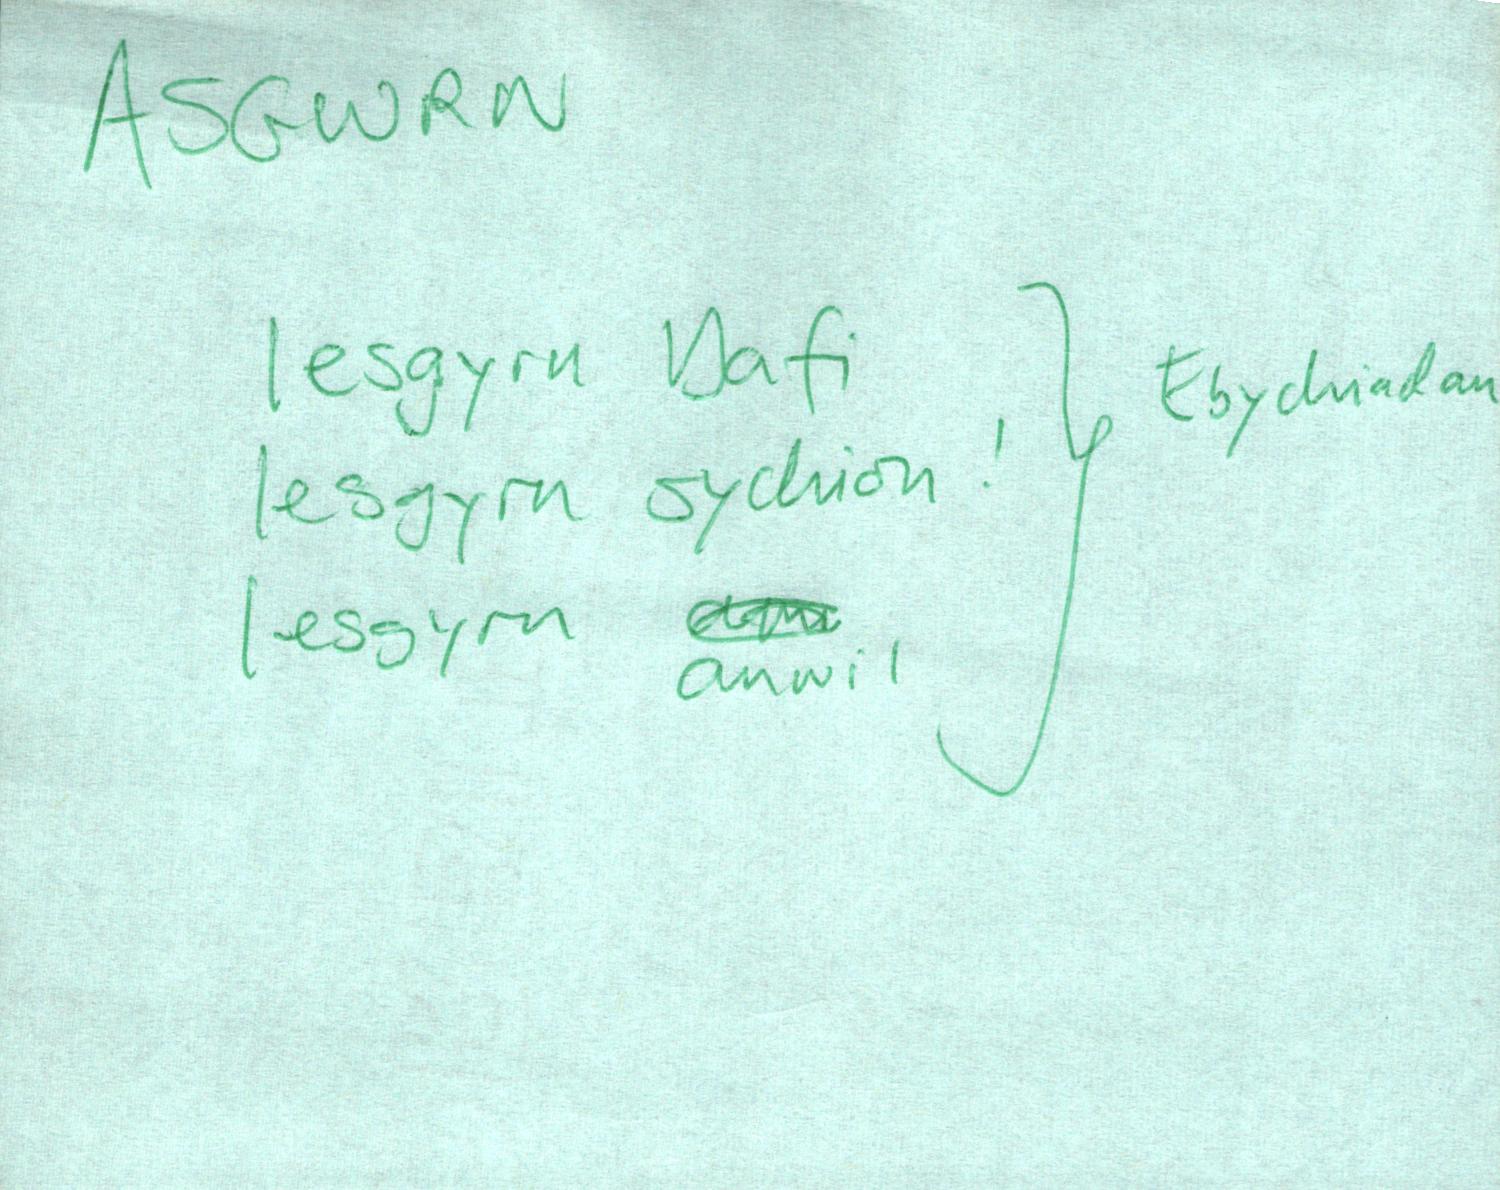 ASGWRN
lesgyrn Dafi
lesgyrn sychion!
lesgyrn
anwil
Ebychiadau